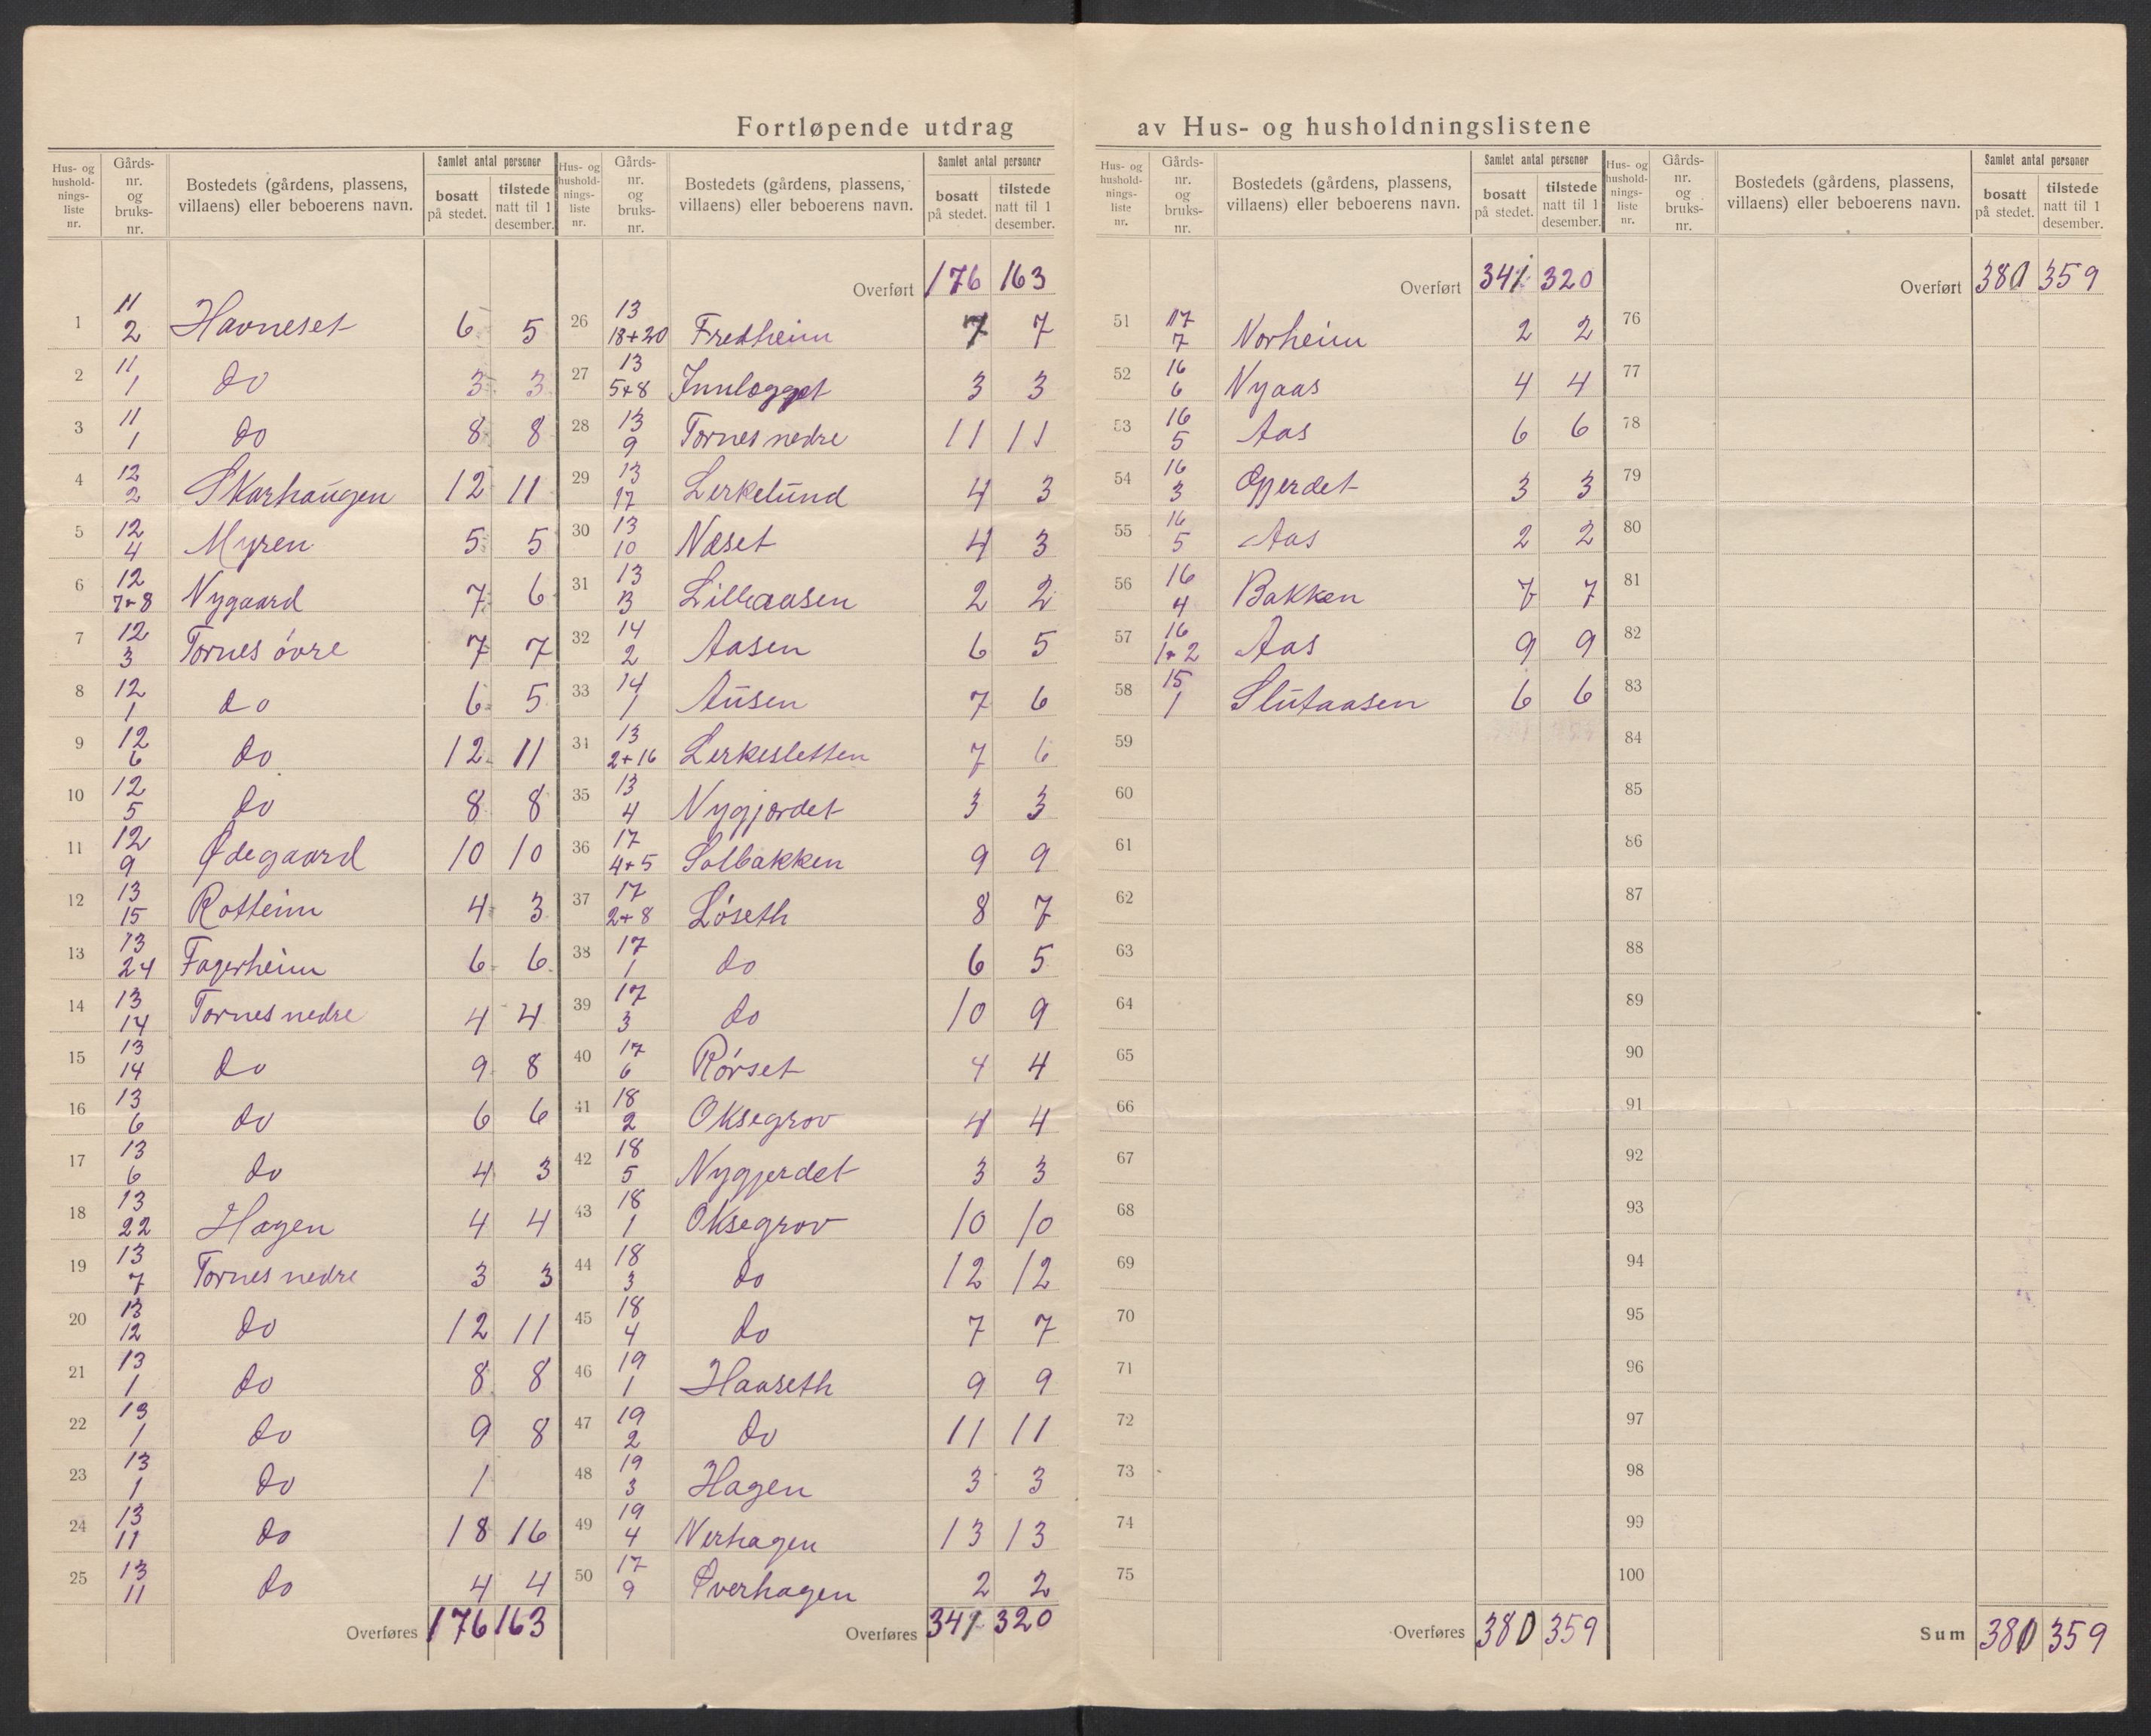 Fortløpende utdrag av Hus- og husholdningslistene
Hus- og hushold-nings-liste nr. | Gårds-nr. og bruks-nr. | Bostedets (gårdens, plassens, villaens) eller beboerens navn. | Samlet antal personer | bosatt på stedet. | tilstede natt til 1 desember.
1 | 11 2 | Havneset | 6 | 5
2 | 11 1 | do | 3 | 3
3 | 11 1 | do | 8 | 8
4 | 12 2 | Skarhaugen | 12 | 11
5 | 12 4 | Myren | 5 | 5
6 | 12 7+8 | Nygaard | 7 | 6
7 | 12 3 | Tornes óvre | 7 | 7
8 | 12 1 | do | 6 | 5
9 | 12 6 | do | 12 | 11
10 | 12 5 | do | 8 | 8
11 | 12 9 | Ødegaard | 10 | 10
12 | 13 15 | Rotteim | 4 | 3
13 | 13 24 | Fagerheim | 6 | 6
14 | 13 14 | Tornes nedre | 4 | 4
15 | 13 14 | do | 9 | 8
16 | 13 6 | do | 6 | 6
17 | 13 6 | do | 4 | 3
18 | 13 22 | Hagen | 4 | 4
19 | 13 7 | Tornes nedre | 3 | 3
20 | 13 12 | do | 12 | 11
21 | 13 1 | do | 8 | 8
22 | 13 1 | do | 9 | 8
23 | 13 1 | do | 1
24 | 13 11 | do | 18 | 16
25 | 13 11 | do | 4 | 4
Overføres 176 163
Hus- og hushold-nings-liste nr. | Gårds-nr. og bruks-nr. | Bostedets (gårdens, plassens, villaens) eller beboerens navn. | Samlet antal personer | bosatt på stedet. | tilstede natt til 1 desember.
Overført 176 163
26 | 13 18+20 | Fredheim | 7 | 7
27 | 13 5+8 | Innlogget | 3 | 3
28 | 13 9 | Tornes nedre | 11 | 11
29 | 13 17 | Lerkelund | 4 | 3
30 | 13 10 | Næset | 4 | 3
31 | 13 3 | Lilleaasen | 2 | 2
32 | 14 2 | Aasen | 6 | 5
33 | 14 1 | Ausen | 7 | 6
34 | 13 2+16 | Lerkesletten | 7 | 6
35 | 13 4 | Nygjordet | 3 | 3
36 | 17 4+5 | Solbakken | 9 | 9
37 | 17 2+8 | Lóseth | 8 | 7
38 | 17 1 | do | 6 | 5
39 | 17 3 | do | 10 | 9
40 | 17 6 | Rórset | 4 | 4
41 | 18 2 | Oksegrov | 4 | 4
42 | 18 5 | Nygjerdet | 3 | 3
43 | 18 1 | Oksegrov | 10 | 10
44 | 18 3 | do | 12 | 12
45 | 18 4 | do | 7 | 7
46 | 19 1 | Haaseth | 9 | 9
47 | 19 2 | do | 11 | 11
48 | 19 3 | Hagen | 3 | 3
49 | 19 4 | Nerhagen | 13 | 13
50 | 17 9 | Øverhagen | 2 | 2
Overføres 341 320
Hus- og hushold-nings-liste nr. | Gårds-nr. og bruks-nr. | Bostedets (gårdens, plassens, villaens) eller beboerens navn. | Samlet antal personer | bosatt på stedet. | tilstede natt til 1 desember.
Overført 341 320
51 | 17 7 | Norheim | 2 | 2
52 | 16 6 | Nyaas | 4 | 4
53 | 16 5 | Aas | 6 | 6
54 | 16 3 | Gjerdet | 3 | 3
55 | 16 5 | Aas | 2 | 2
56 | 16 4 | Bakken | 7 | 7
57 | 16 1+2 | Aas | 9 | 9
58 | 15 1 | Slutaasen | 6 | 6
59
60
61
62
63
64
65
66
67
68
69
70
71
72
73
74
75
Overføres 380 359
Hus- og hushold-nings-liste nr. | Gårds-nr. og bruks-nr. | Bostedets (gårdens, plassens, villaens) eller beboerens navn. | Samlet antal personer | bosatt på stedet. | tilstede natt til 1 desember.
Overført 380 359
76
77
78
79
80
81
82
83
84
85
86
87
88
89
90
91
92
93
94
95
96
97
98
99
100
Sum 380 359